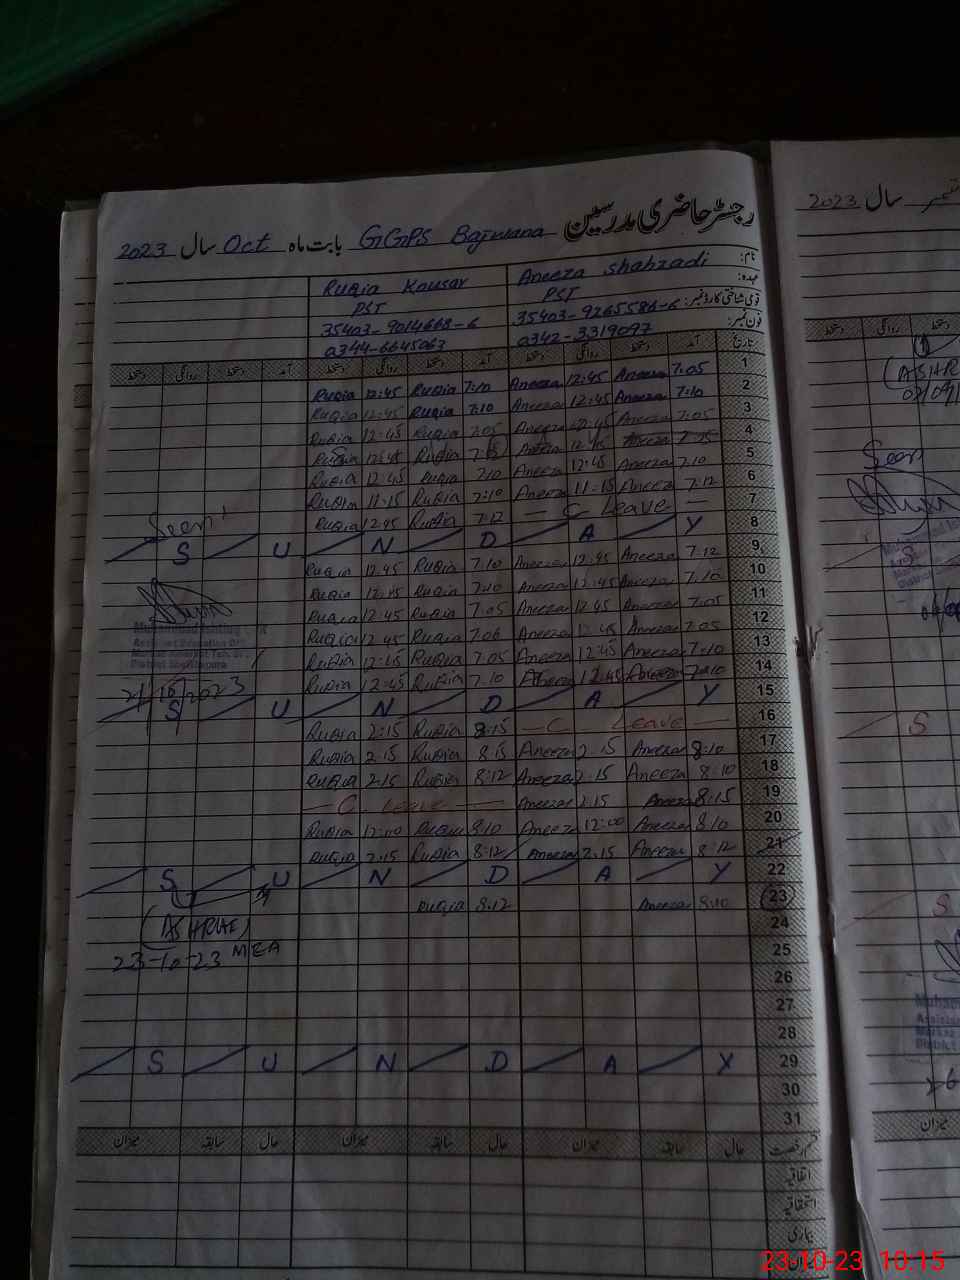 رجسٹر حاضری مدرسین GGPS Bajwana بابت ماہ Oct سال 2023
نام: Aneeza Shahzadi Ruqia Kausar
عہدہ: PST PST
قومی شناختی کارڈ نمبر: 35403-9265586-6 35403-9014668-6
فون نمبر: 0342-3319097 0344-6645063
تاریخ آمد دستخط روانگی دستخط آمد دستخط روانگی دستخط آمد دستخط روانگی دستخط
1 7:05 Aneeza 12:45 Aneeza 7:10 Ruqia 12:45 Ruqia
2 7:10 Aneeza 12:45 Aneeza 7:10 Ruqia 12:45 Ruqia
3 7:05 Aneeza 12:45 Aneeza 7:05 Ruqia 12:45 Ruqia
4 7:05 Aneeza 12:45 Aneeza Ruqia 12:45 Ruqia
5 7:10 Aneeza 12:45 Aneeza 7:10 Ruqia 12:45 Ruqia
6 7:12 Aneeza 11:15 Aneeza 7:10 Ruqia 11:15 Ruqia
7 — C - Leave — 7:12 Ruqia 12:45 Ruqia
8 S U N D A Y
9 7:12 Aneeza 12:45 Aneeza 7:10 Ruqia 12:45 Ruqia
10 7:10 Aneeza 12:45 Aneeza 7:10 Ruqia 12:45 Ruqia
11 7:05 Aneeza 12:45 Aneeza 7:05 Ruqia 12:45 Ruqia
12 7:05 Aneeza 12:45 Aneeza 7:06 Ruqia 12:45 Ruqia
13 7:10 Aneeza 12:45 Aneeza 7:05 Ruqia 12:45 Ruqia
14 7:10 Aneeza 12:45 Aneeza 7:10 Ruqia 12:45 Ruqia
15 S U N D A Y
16 — C Leave — 8:15 Ruqia 2:15 Ruqia
17 8:10 Aneeza 2:15 Aneeza 8:15 Ruqia 2:15 Ruqia
18 8:10 Aneeza 2:15 Aneeza 8:12 Ruqia 2:15 Ruqia
19 8:15 Aneeza 2:15 Aneeza — C Leave —
20 8:10 Aneeza 12:00 Aneeza 8:10 Ruqia 12:00 Ruqia
21 8:12 Aneeza 2:15 Aneeza 8:12 Ruqia 2:15 Ruqia
22 S U N D A Y
23 8:10 Aneeza 8:12 Ruqia
24
25
26
27
28
29 S U N D A Y
30
31
قسم رخصت حال سابقہ میزان حال سابقہ میزان حال سابقہ میزان
اتفاقیہ
استحقاقیہ
بیماری
Seen
Assistant Education
District
21/10/2023
(ASHRAF)
23-10-23 MEA
سال 2023
دستخط روانگی دستخط
Seen
S
S
Assistan
District
میزان
23-10-23 10:15